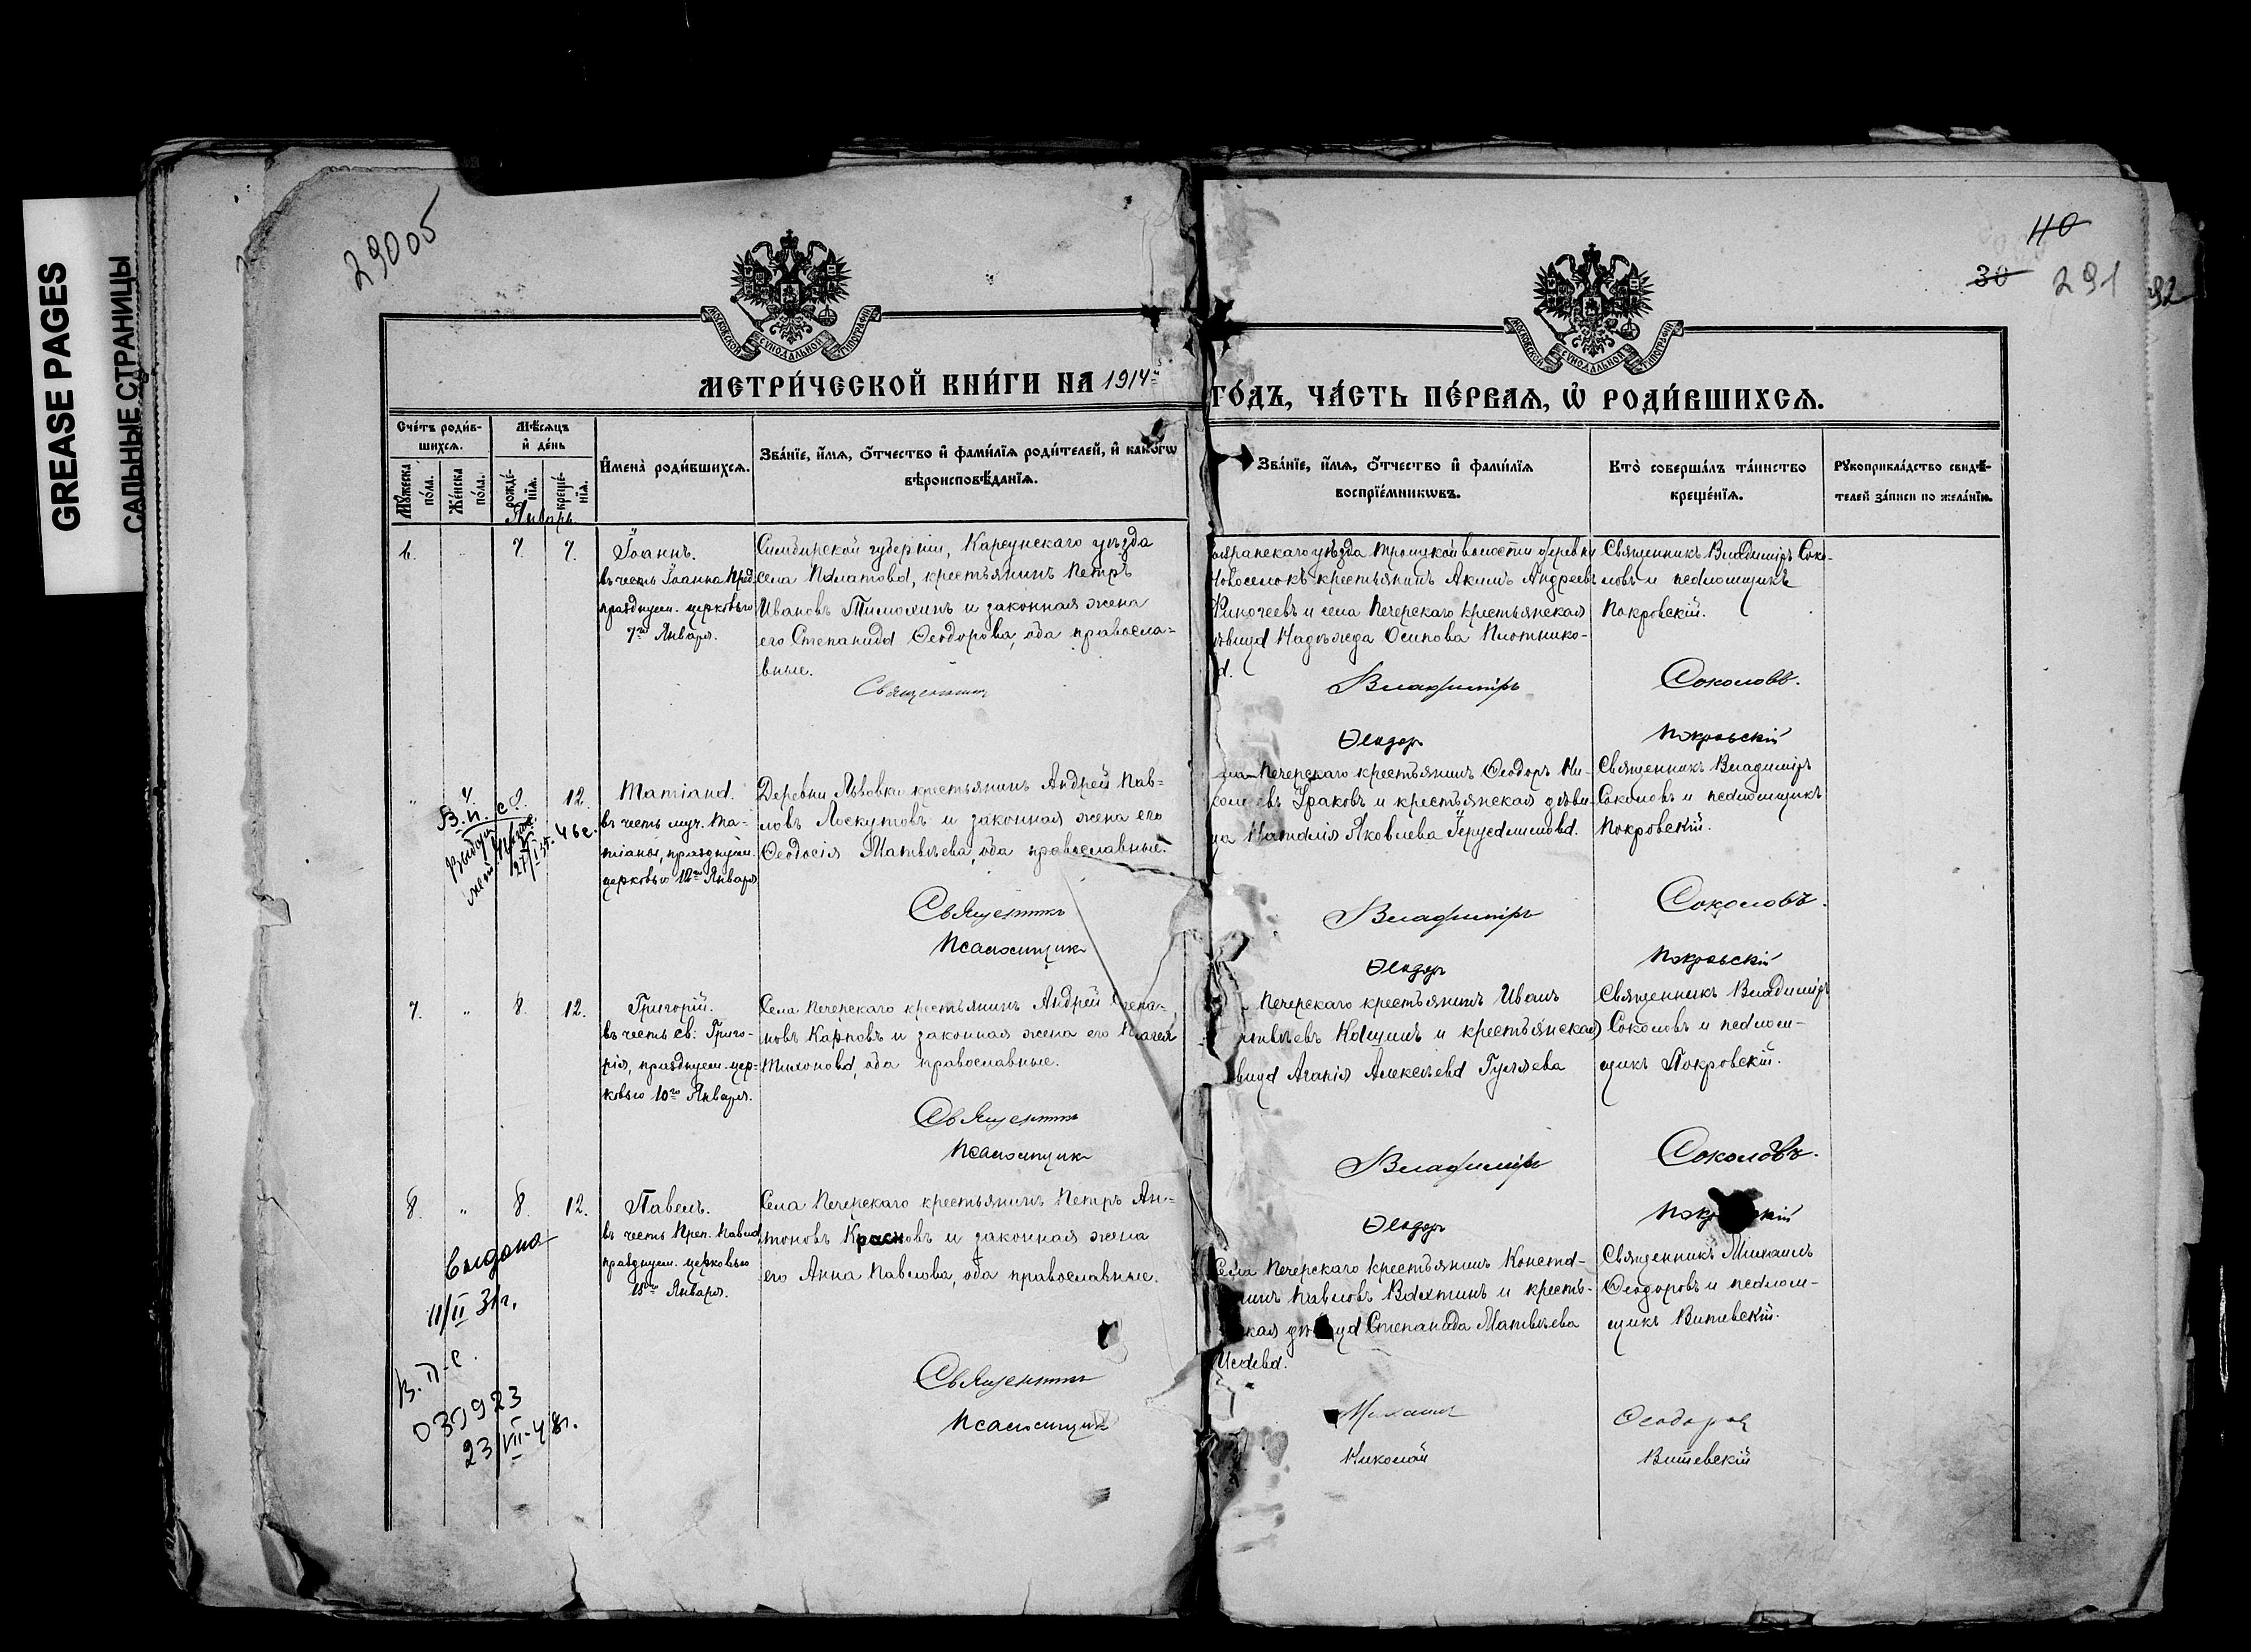 GREASE PAGES
САЛЬНЫЕ СТРАНИЦЫ
290об
110
30
291
92
МОСКОВСКОЙ СѴНОДАЛЬНОЙ ТИПОГРАФІИ
МОСКОВСКОЙ СѴНОДАЛЬНОЙ ТИПОГРАФІИ
МЕТРИ́ЧЕСКОЙ КНИ́ГИ НА 1914й
ГО́ДЪ, ЧА́СТЬ ПЕ́РВАѦ, Ѽ РОДИ́ВШИХСѦ.
Сче́тъ роди́в-
шихсѧ.
Мѣ́сѧцъ
и҆ де́нь
Мꙋ́жеска по́ла.
Же́нска по́ла.
рожде́-
нїѧ.
креще́-
нїѧ.
И҆мена̀ роди́вшихсѧ.
Зва́нїе, и҆́мѧ, ѻ҆́тчество и҆ фами́лїѧ роди́телей, и҆ како́гѡ
вѣроисповѣ́данїѧ.
Зва́нїе, и҆́мѧ, ѻ҆́тчество и҆ фами́лїѧ
воспрїе́мникѡвъ.
Кто̀ соверша́лъ та́инство
креще́нїѧ.
Рꙋкоприкла́дство свидѣ́-
телей за́писи по жела́нїю.
Январь
6.
"
7.
7.
Іоаннъ.
въ честь Іоанна Пред.
празднуем. церковью
7го Января.
Симбирской губерніи, Карсунскаго уѣзда
села Палатова, крестьянинъ Петръ
Ивановъ Тимохинъ и законная жена
его Степанида Ѳеодорова, оба правосла-
вные.
Священникъ
уѣзда Троицкой волости деревни
Новоселокъ крестьянинъ Акимъ Андреевъ
и села Печерскаго крестьянская
дѣвица Надежда Осипова Плотнико-
а.
Владиміръ
Ѳеодоръ
Священникъ Владиміръ Соко-
ловъ и псаломщикъ
Покровскій.
Соколовъ.
Покровскій
"
4.
8.
12.
В. п. с.
Выдана
27/I
46 г.
Татіана.
въ честь муч. Та-
тіаны, празднуем.
церковью 12го Января
Деревни Львовки крестьянинъ Андрей Пав-
ловъ Лоскутовъ и законная жена его
Ѳеодосія Матвѣева, оба православные.
Священникъ
Псаломщикъ
Печерскаго крестьянинъ Ѳеодоръ Ни-
Ураковъ и крестьянская дѣви-
ца Наталія Яковлева Іерусалимова.
Владиміръ
Ѳеодоръ
Священникъ Владиміръ
Соколовъ и псаломщикъ
Покровскій.
Соколовъ.
Покровскій
7.
"
8.
12.
Григорій.
въ честь св. Григо-
рія, празднуем. цер-
ковью 10го Января.
Села Печерскаго крестьянинъ Андрей Степа-
новъ Карповъ и законная жена его Пелагея
Тихонова, оба православные.
Священникъ
Псаломщикъ
Печерскаго крестьянинъ Иванъ
Матвѣевъ Кащинъ и крестьянская
вица Агапія Алексѣева Гуляева
Владиміръ
Ѳеодоръ
Священникъ Владиміръ
Соколовъ и псалом-
щикъ Покровскій.
Соколовъ.
Покровскій
8.
"
8.
12.
Выдана
11/II 31г.
В. П-с.
23/VII-48г.
Павелъ.
въ честь Преп. Павла
празднуем. церковью
15го Января.
Села Печерскаго крестьянинъ Петръ Ан-
тоновъ Красновъ и законная жена
его Анна Павлова, оба православные.
Священникъ
Псаломщикъ
Села Печерскаго крестьянинъ Конста-
нтинъ Павловъ Вахтинъ и кресть-
янская дѣвица Степанида Матвѣева
Исаева.
Михаилъ
Николай
Священникъ Михаилъ
Ѳеодоровъ и псалом-
щикъ Витевскій.
Ѳеодоровъ
Витевскій